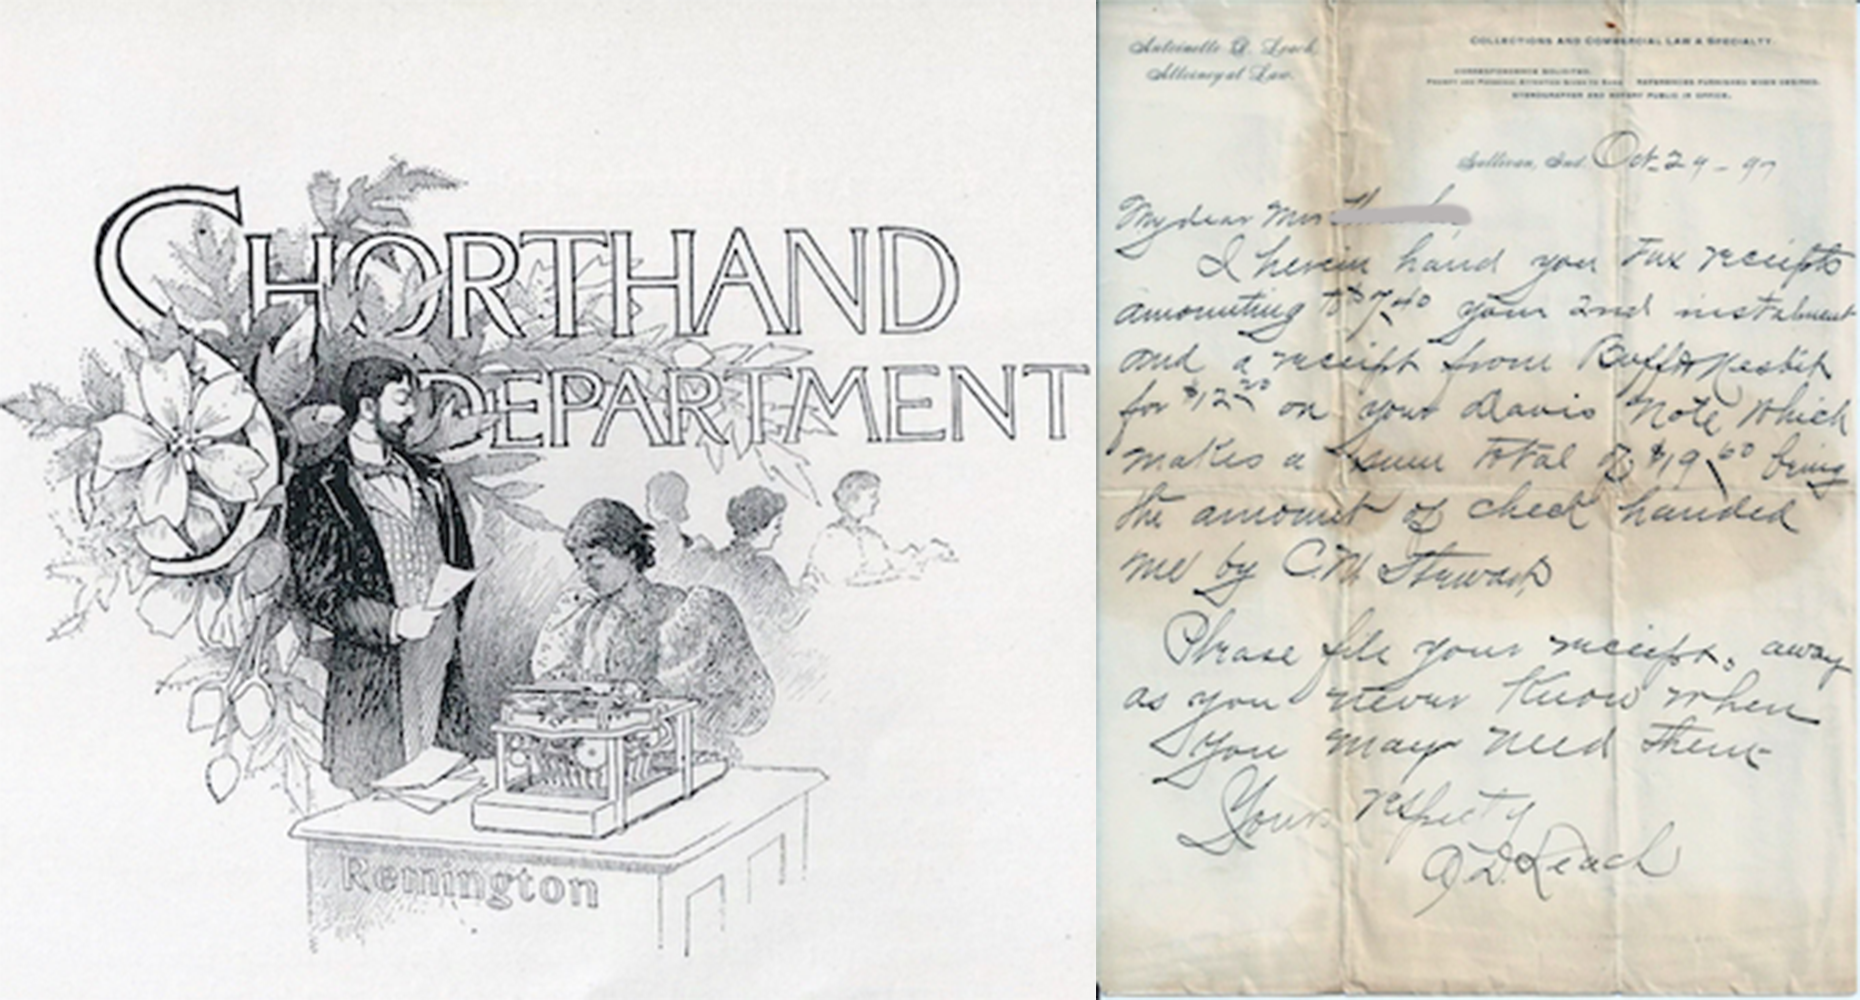 SHORTHAND
DEPARTMENT
Remington
Antoinette D. Leach
Attorney at Law.
COLLECTIONS AND COMMERCIAL LAW A SPECIALTY.
CORRESPONDENCE SOLICITED.
PROMPT AND PERSONAL ATTENTION GIVEN TO SAME REFERENCES FURNISHED WHEN DESIRED.
STENOGRAPHER AND NOTARY PUBLIC IN OFFICE.
Sullivan, Ind. Oct 29-97
My dear Mrs
I herein hand you Tax receipts
amounting to $7.40 your 2nd instalment
and a receipt from & Nesbit
for $12.20 on your Davis Note Which
makes a sum total of $19.60 being
the amount of check handed
me by C.M. Stewart
Please file your receipts away
as you never Know when
you may need them
Yours respectfy
A D Leach